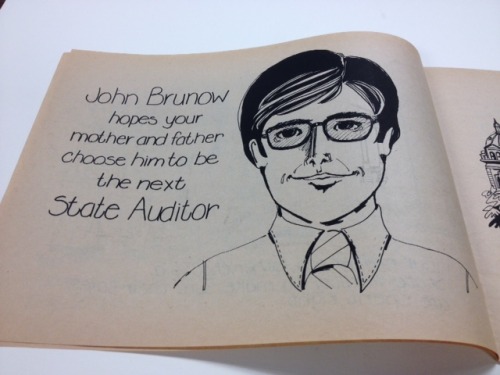 John Brunow
hopes your
mother and father
choose him to be
the next
State Auditor